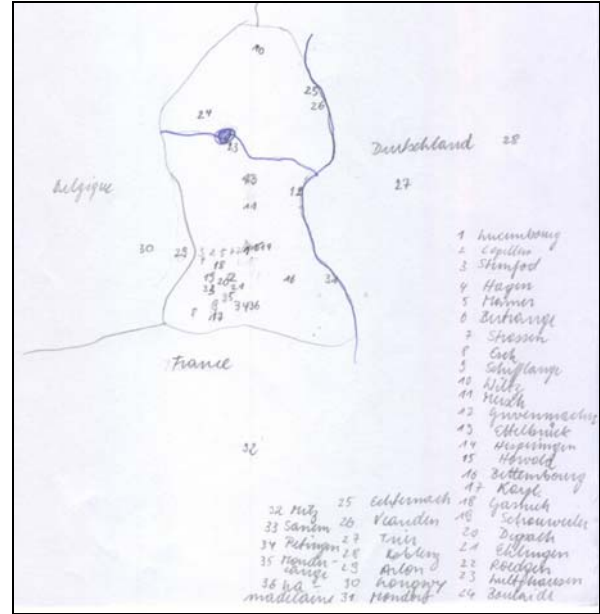 10
25
26
24
23
Deutschland 28
Belgique
13
27
12
11
30
29
18
16
31
8
17
3436
France
32
1 Luxembourg
2 Capellen
3 Steinfod
4 Hagen
5 Mamer
6 Bertrange
7 Strassen
8 Esch
9 Schifflange
10 Wiltz
11 Mersch
12 Grevenmacher
13 Ettelbrück
14 Hesperingen
15 Howald
16 Bettembourg
17 Kayl
18 Garnich
19 Schouweiler
20 Dipach
21 Ehlingen
22 Roedgen
23
24 Boulaide
25 Echternach
26 Vianden
27 Trier
28 Koblenz
29 Arlon
30 Longwy
31 Mondorf
32 Metz
33 Sanem
34 Petingen
35 Monder-
cange
36 La-
madelaine